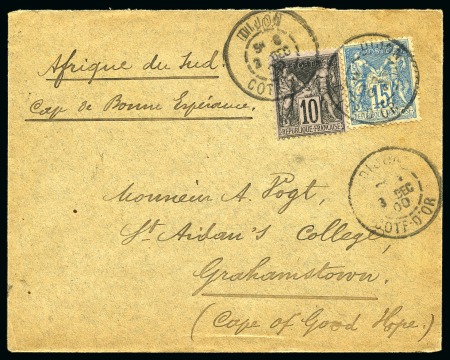 DIJON
3 DEC
COTE-D'OR
10
REPUBLIQUE FRANCAISE
15
Afrique du Sud
Cap de Bonne Espérance.
DIJON
3 DEC
00
COTE-D'OR
Monsieur A. Vogt,
St Aidan's College,
Grahamstown.
(Cape of Good Hope.)